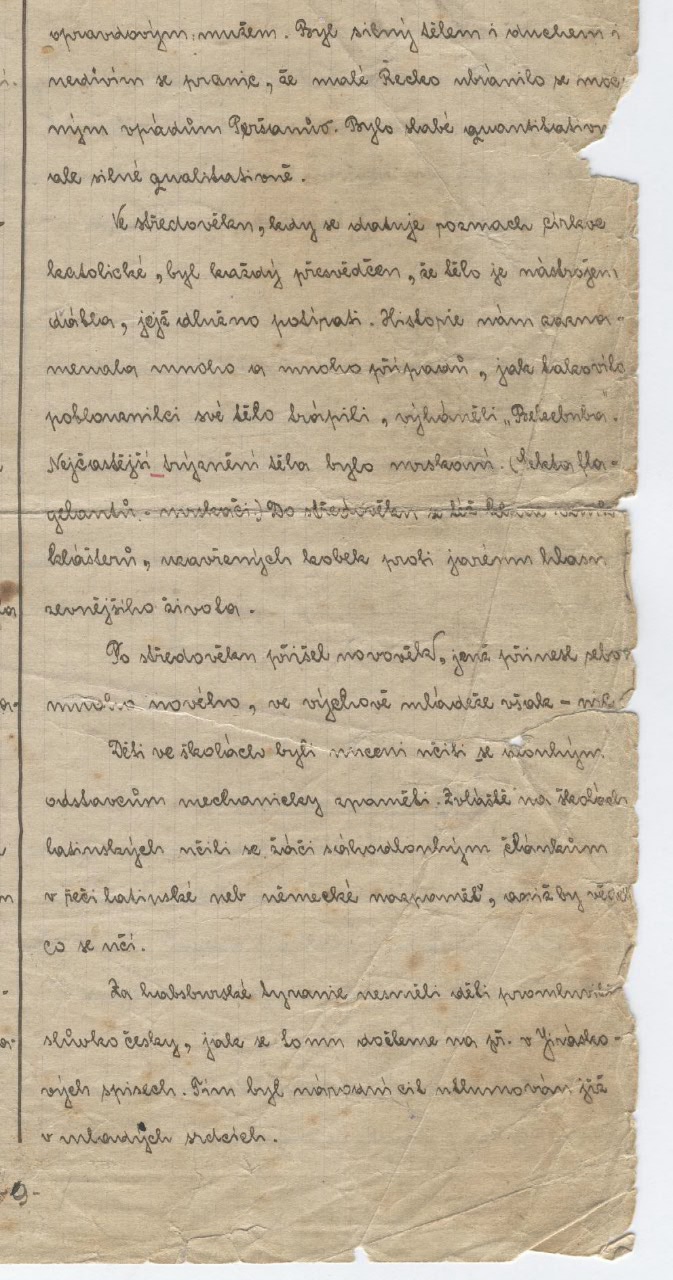 opravdovým mužem. Byl silný tělem i duchem i
nedivím se pranic, že malé Řecko ubránilo se moc-
ným vpádům Peršanův. Bylo slabé quantitativn
ale silné qualitativně.
Ve středověku, kdy se datuje rozmach církve
katolické, byl každý přesvědčen, že tělo je nástrojem
ďábla, jejž dlužno potírati. Historie nám zazna-
menala mnoho a mnoho případů, jak takovíto
poblouznilci své tělo trápili, vyháněli „Belzebuba".
Nejčastější trýznění těla bylo mrskání. (Sekta fla-
gelantů - mrskači.) Do středověku
klášterů, uzavřených kobek proti jarému hlasu
zevnějšího života.
Po středověku přišel novověk, jenž přinesl sebou
mnoho nového, ve výchově mládeže však - nic
Děti ve školách byli nuceni učiti se dlouhým
odstavcům mechanicky zpaměti. Zvláště na školách
latinských učili se žáci sáhodlouhým článkům
v řeči latinské neb německé nazpaměť, aniž by věděli
co se učí.
Za habsburské tyranie nesměli děti promluviti
slůvko česky, jak se tomu dočteme na př. v Jirásko-
vých spisech. Tím byl národní cit utlumován již
v mladých srdcích.
-9-